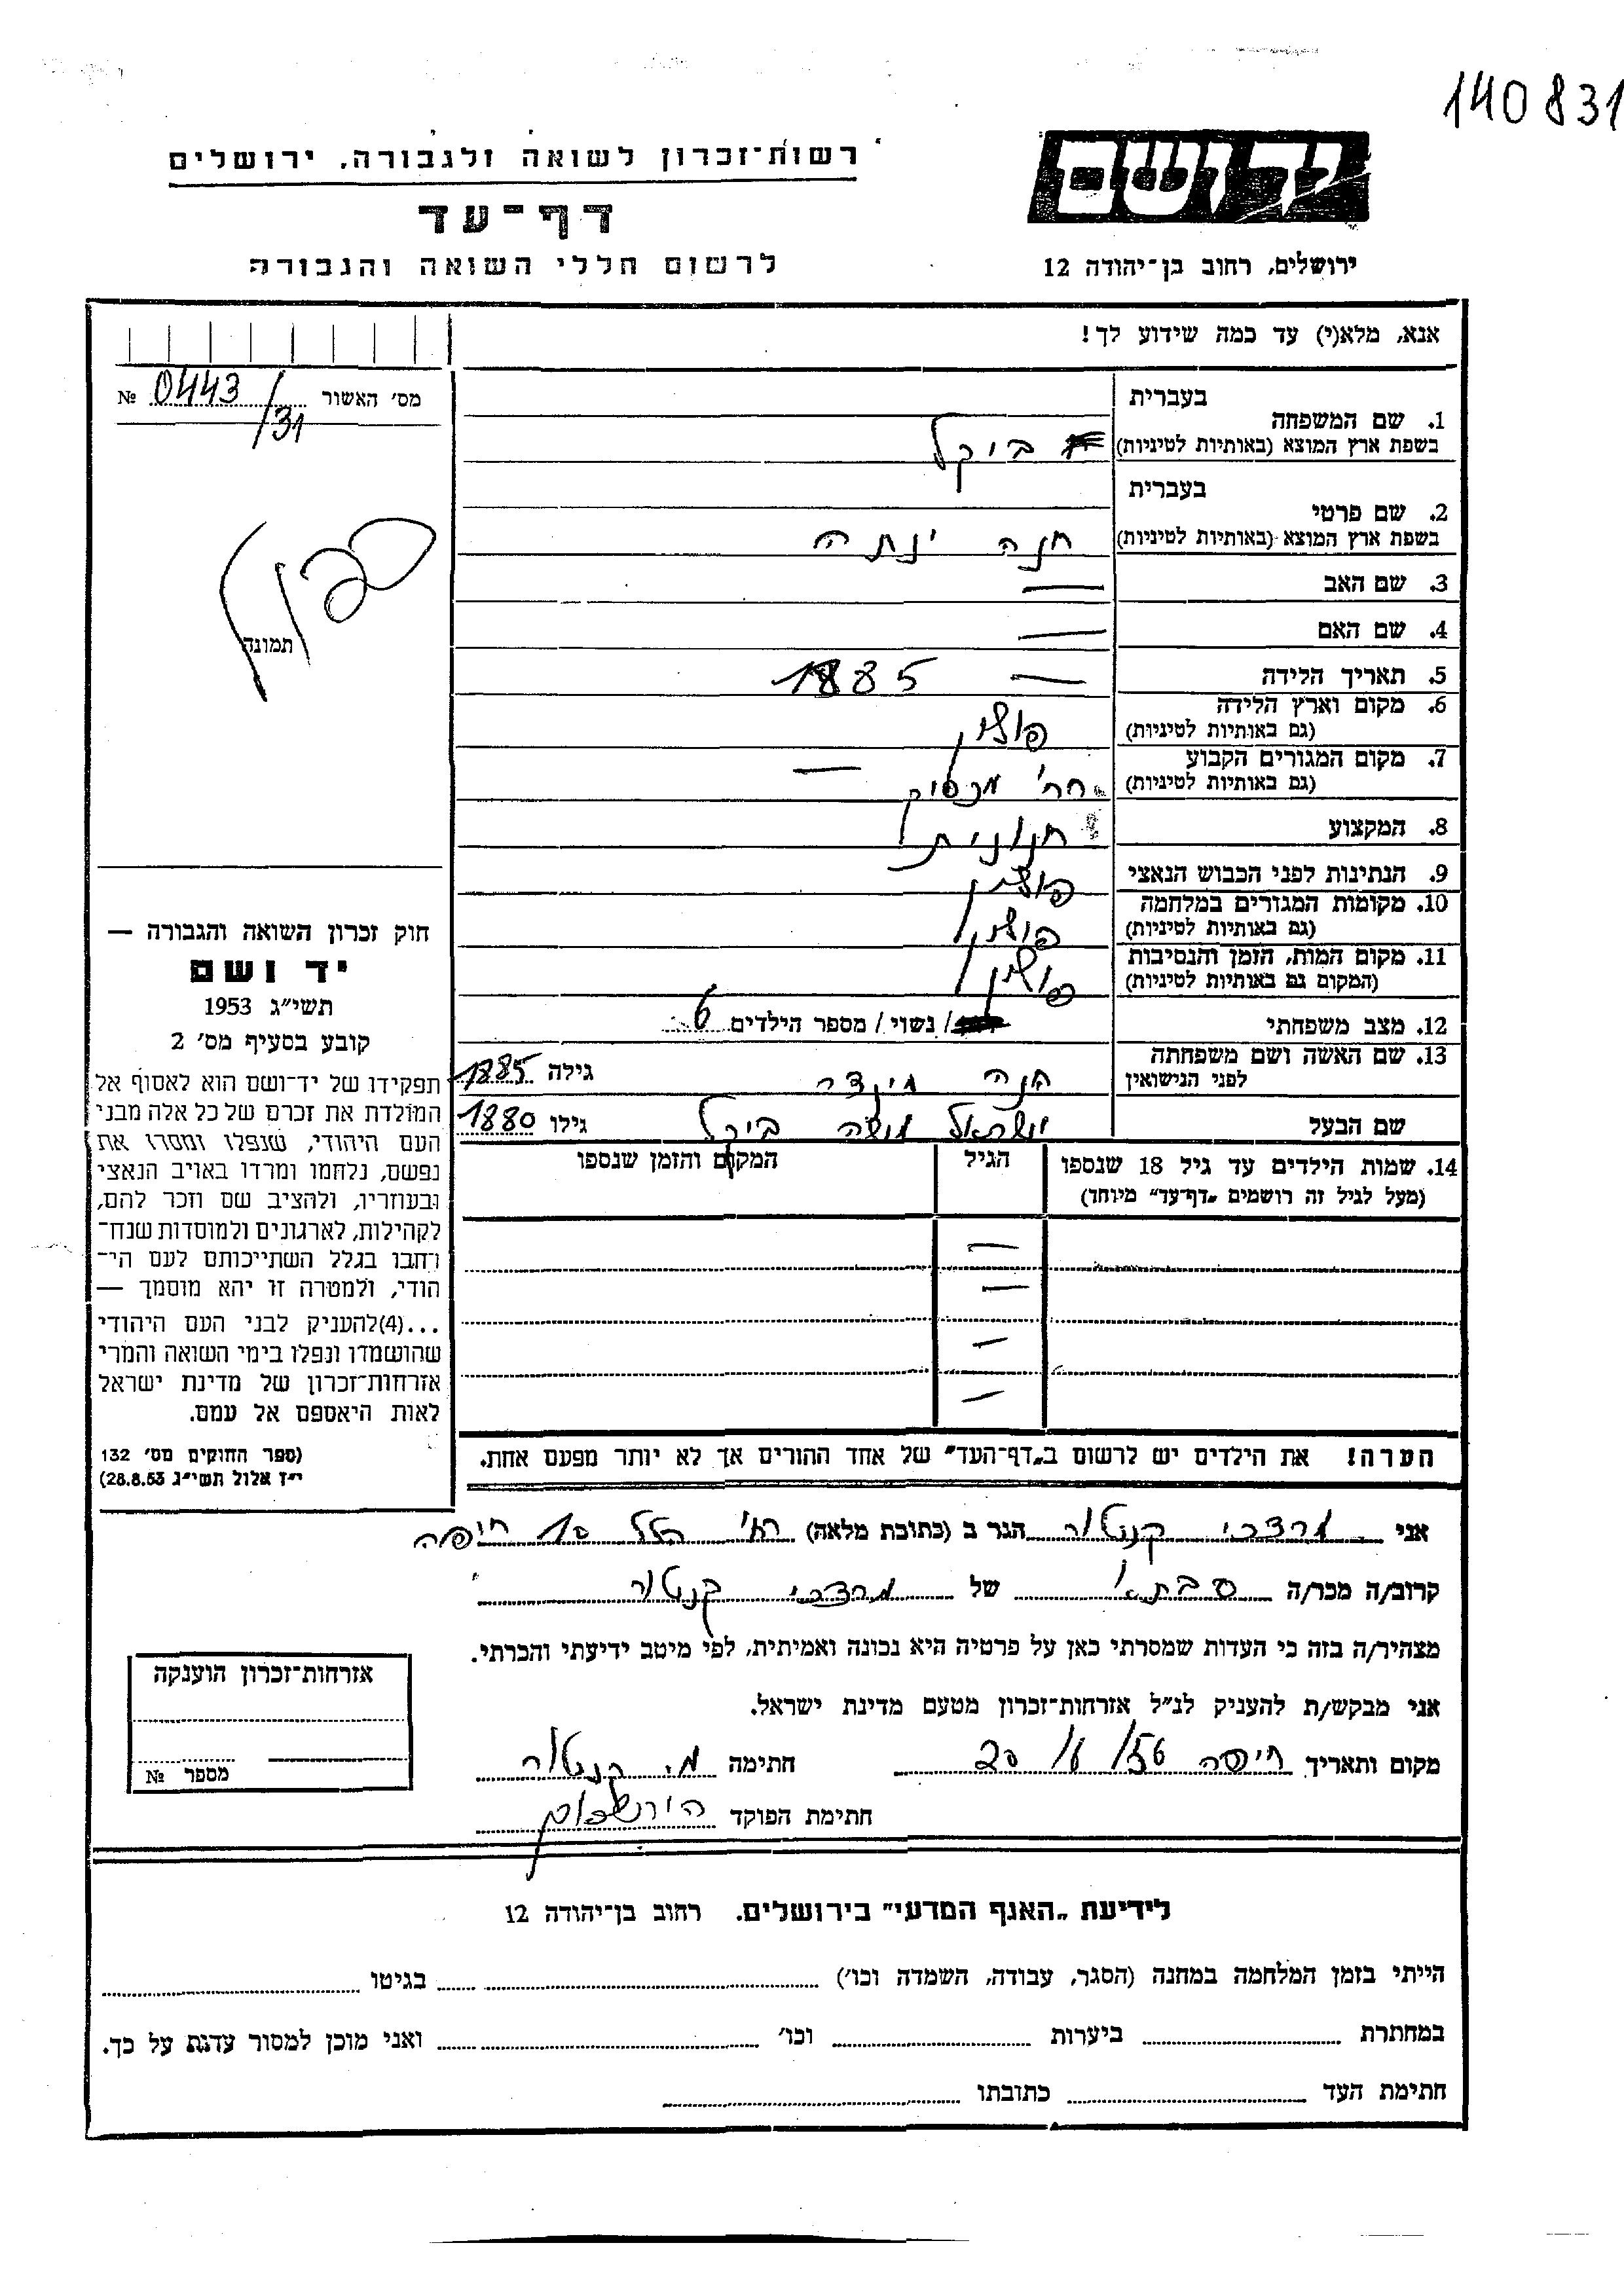 140831
יד ושם
רשות־זכרון לשואה ולגבורה, ירושלים
דף־עד
ירושלים, רחוב בן־יהודה 12
לרשום חללי השואה והגבורה
אנא, מלא(י) עד כמה שידוע לך!
מס׳ האשור № 0443/31
תמונה
בעברית
1. שם המשפחה
בשפת ארץ המוצא (באותיות לטיניות) ביקל
בעברית
2. שם פרטי
בשפת ארץ המוצא (באותיות לטיניות) חנה
3. שם האב —
4. שם האם —
5. תאריך הלידה — 1885
6. מקום וארץ הלידה
(גם באותיות לטיניות) פולין
7. מקום המגורים הקבוע —
(גם באותיות לטיניות) רח׳
8. המקצוע חנונית
9. הנתינות לפני הכבוש הנאצי פולין
10. מקומות המגורים במלחמה
(גם באותיות לטיניות) פולין
11. מקום המות, הזמן והנסיבות
(המקום גם באותיות לטיניות) פולין
12. מצב משפחתי / נשוי / מספר הילדים 6
13. שם האשה ושם משפחתה
לפני הנישואין חנה גילה 1885
שם הבעל ישראל משה ביקל גילו 1880
14. שמות הילדים עד גיל 18 שנספו הגיל המקום והזמן שנספו
(מעל לגיל זה רושמים „דף־עד״ מיוחד)
—
—
—
—
הערה! את הילדים יש לרשום ב„דף־העד״ של אחד ההורים אך לא יותר מפעם אחת.
חוק זכרון השואה והגבורה —
יד ושם
תשי״ג 1953
קובע בסעיף מס׳ 2
תפקידו של יד־ושם הוא לאסוף אל
המולדת את זכרם של כל אלה מבני
העם היהודי, שנפלו ומסרו את
נפשם, נלחמו ומרדו באויב הנאצי
ובעוזריו, ולהציב שם וזכר להם,
לקהילות, לארגונים ולמוסדות שנח־
רבו בגלל השתייכותם לעם הי־
הודי, ולמטרה זו יהא מוסמך —
...(4)להעניק לבני העם היהודי
שהושמדו ונפלו בימי השואה והמרי
אזרחות־זכרון של מדינת ישראל
לאות היאספם אל עמם.
(ספר החוקים מס׳ 132
י״ז אלול תשי״ג 28.8.53)
אני מרדכי קנטור הגר ב (כתובת מלאה) רח׳ הלל 10 חיפה
קרוב/ה מכר/ה סבתא של מרדכי קנטור
מצהיר/ה בזה כי העדות שמסרתי כאן על פרטיה היא נכונה ואמיתית, לפי מיטב ידיעתי והכרתי.
אני מבקש/ת להעניק לנ״ל אזרחות־זכרון מטעם מדינת ישראל.
מקום ותאריך חיפה 20/6/56 חתימה מ. קנטור
חתימת הפוקד
אזרחות־זכרון הוענקה
מספר №
לידיעת „האגף המדעי״ בירושלים. רחוב בן־יהודה 12
הייתי בזמן המלחמה במחנה (הסגר, עבודה, השמדה וכו׳) בגיטו
במחתרת ביערות וכו׳ ואני מוכן למסור עדות על כך.
חתימת העד כתובתו